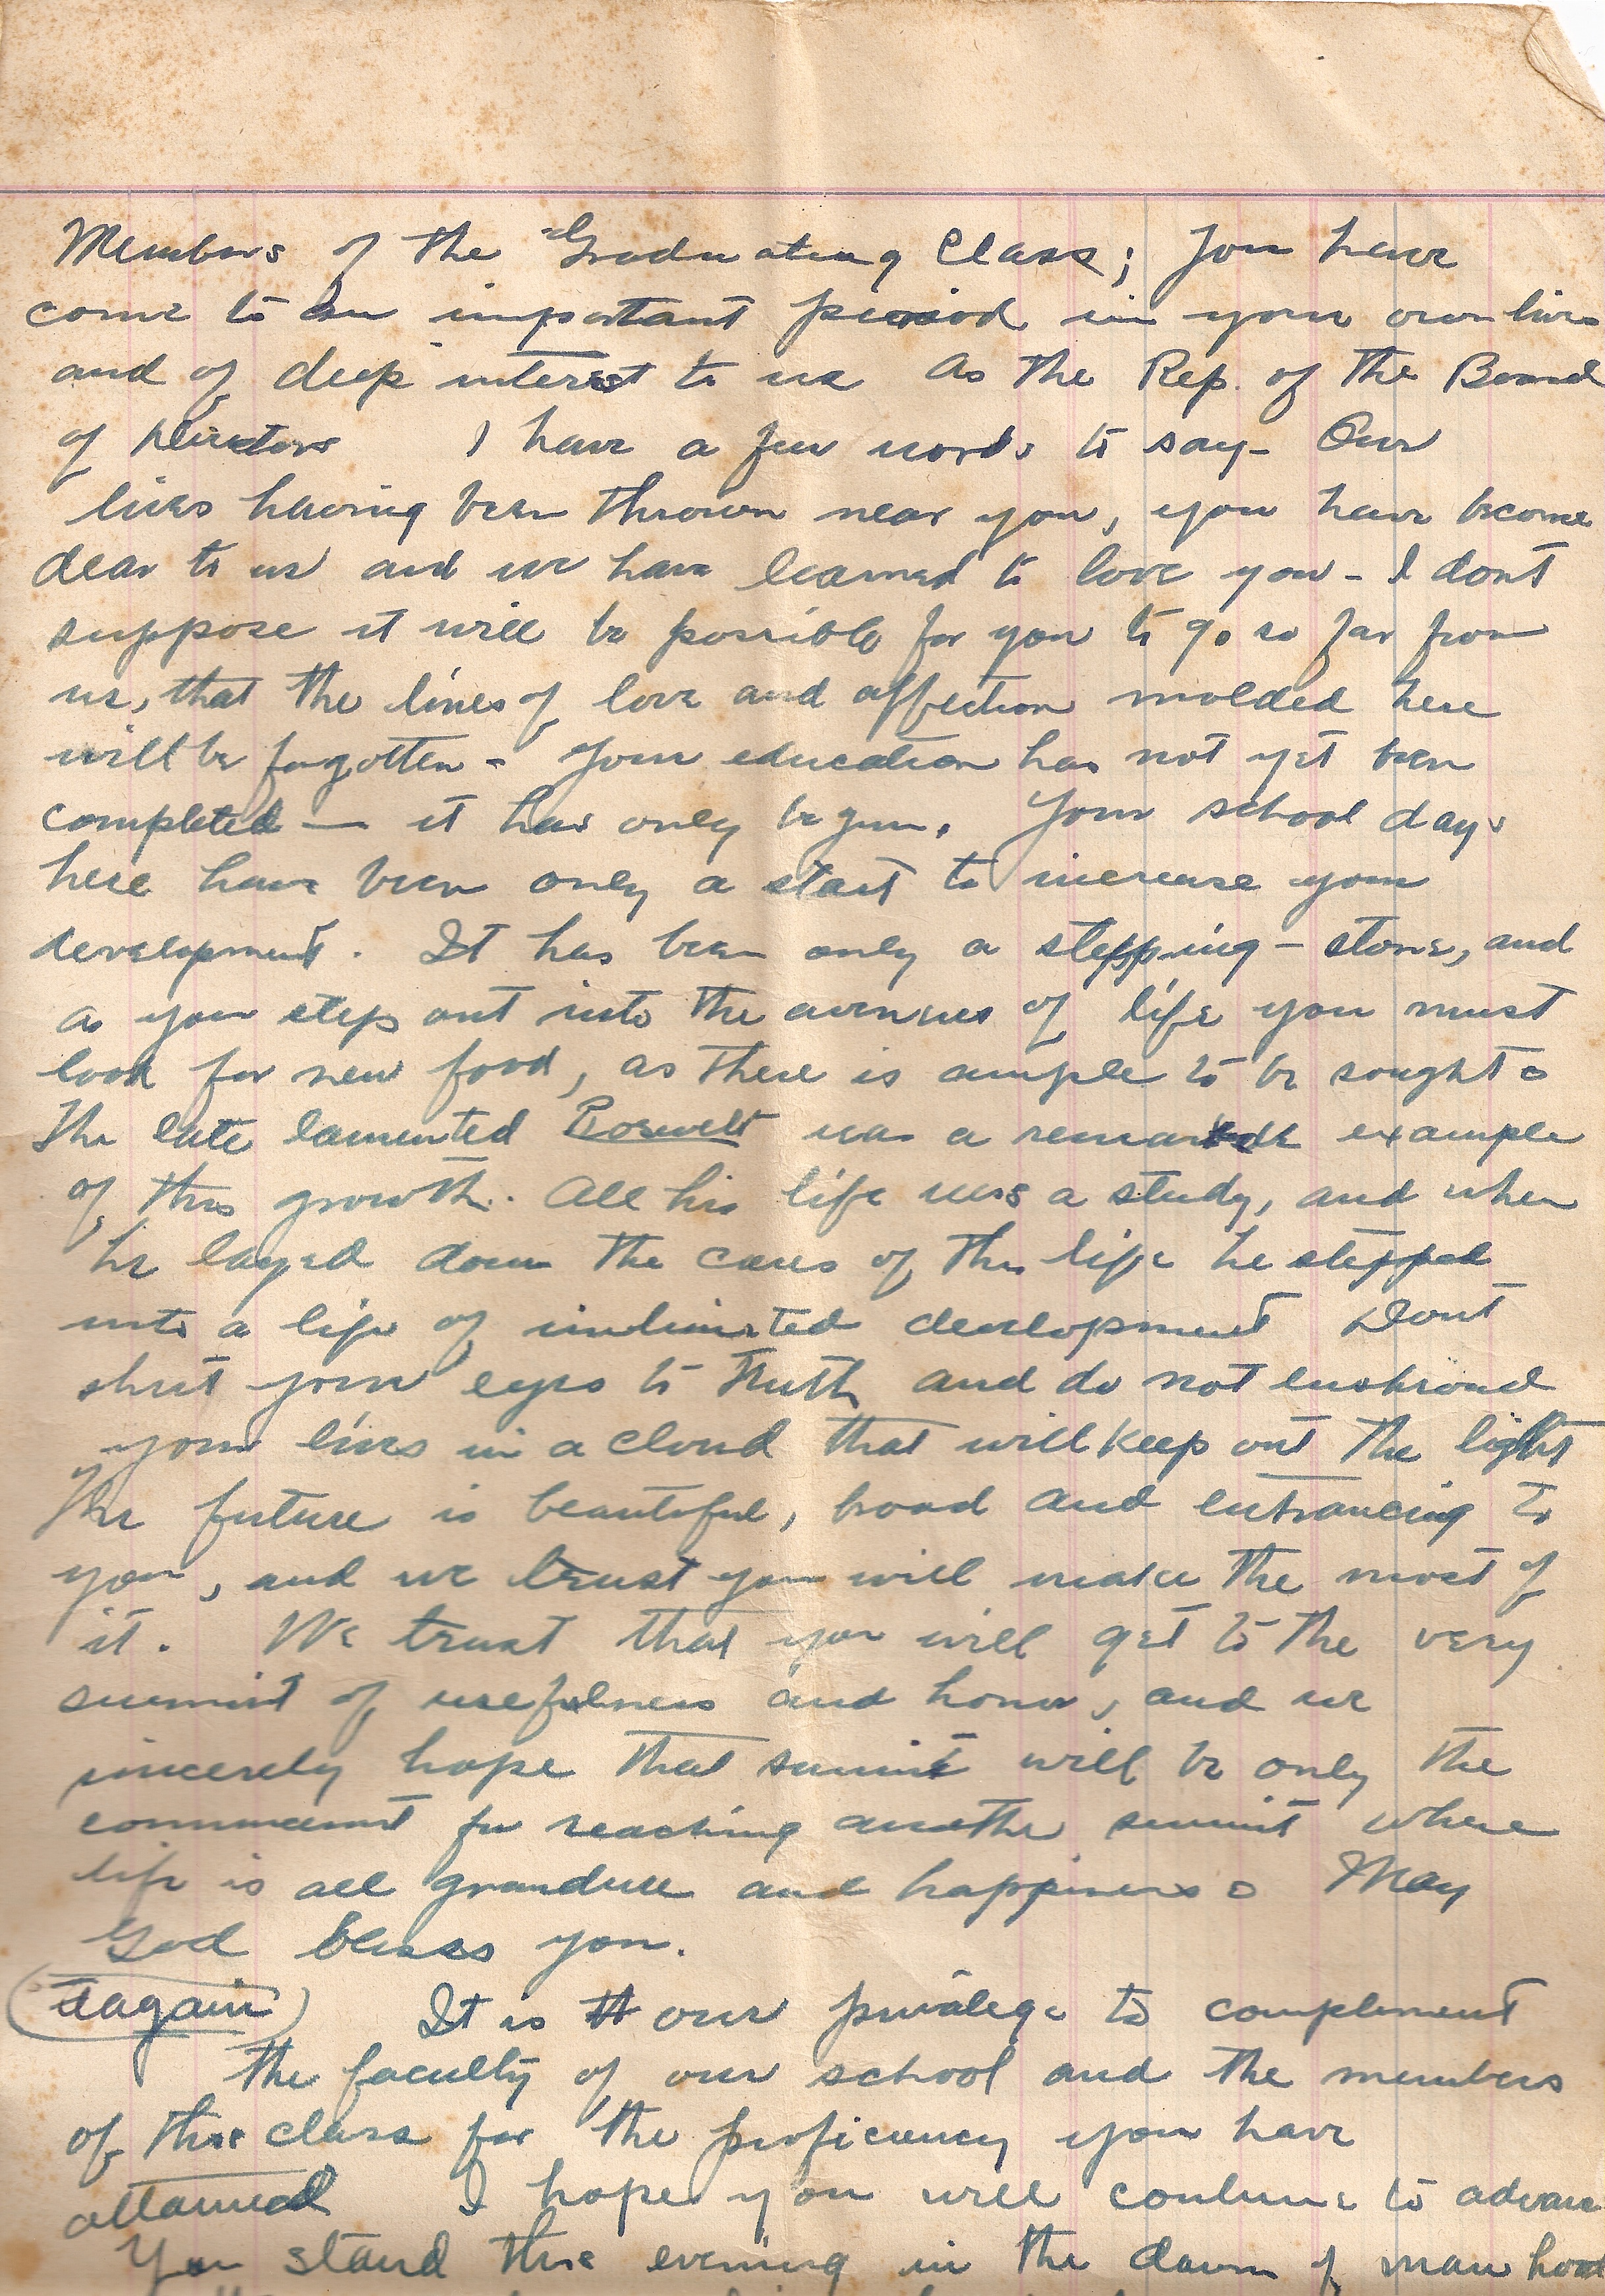 Members of the Graduating Class; You have
come to an important period in your own lives
and of deep interest to us As the Rep. of the Board
of Directors I have a few words to say - Our
lives having been thrown near you, you have become
dear to us and we have learned to love you - I dont
suppose it will be possible for you to go so far from
us, that the lines of love and affection molded here
will be forgotten - Your education has not yet been
completed — it has only begun. Your school days
here have been only a start to increase your
development. It has been only a stepping - stone, and
as you step out into the avenues of life you must
look for new food, as there is ample to be sought.
The late lamented Rosevelt was a example
of this growth. All his life was a study, and when
he layed down the cares of this life he stepped
into a life of unlimited development Dont
shut your eyes to Truth and do not enshroud
your lives in a cloud that will keep out the light
The future is beautiful, broad and entrancing to
you, and we trust you will make the most of
it. We trust that you will get to the very
summit of usefulness and honor, and we
sincerely hope that summit will be only the
for reaching another summit where
life is all grandure and happiness. May
God bless you.
again) It is our privalege to complement
the faculty of our school and the members
of this class for the proficiency you have
attained I hope you will continue to advance
You stand this evening in the dawn of man hood